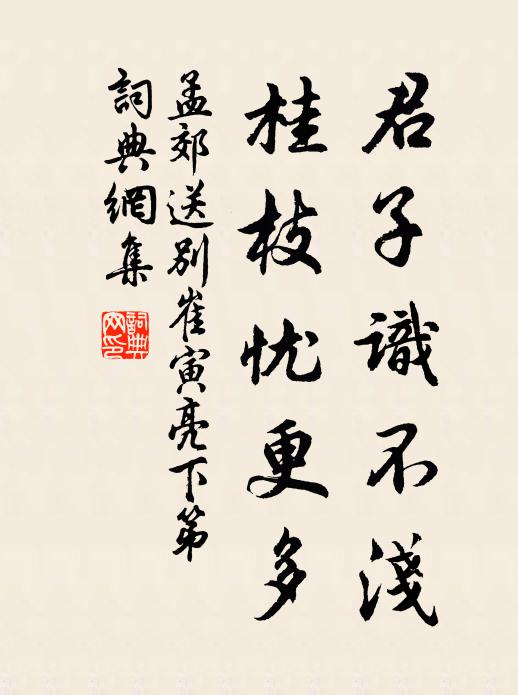 君子識不淺
桂枝忧更多
孟郊送别崔寅亮下第
詞典網集
詞典網印